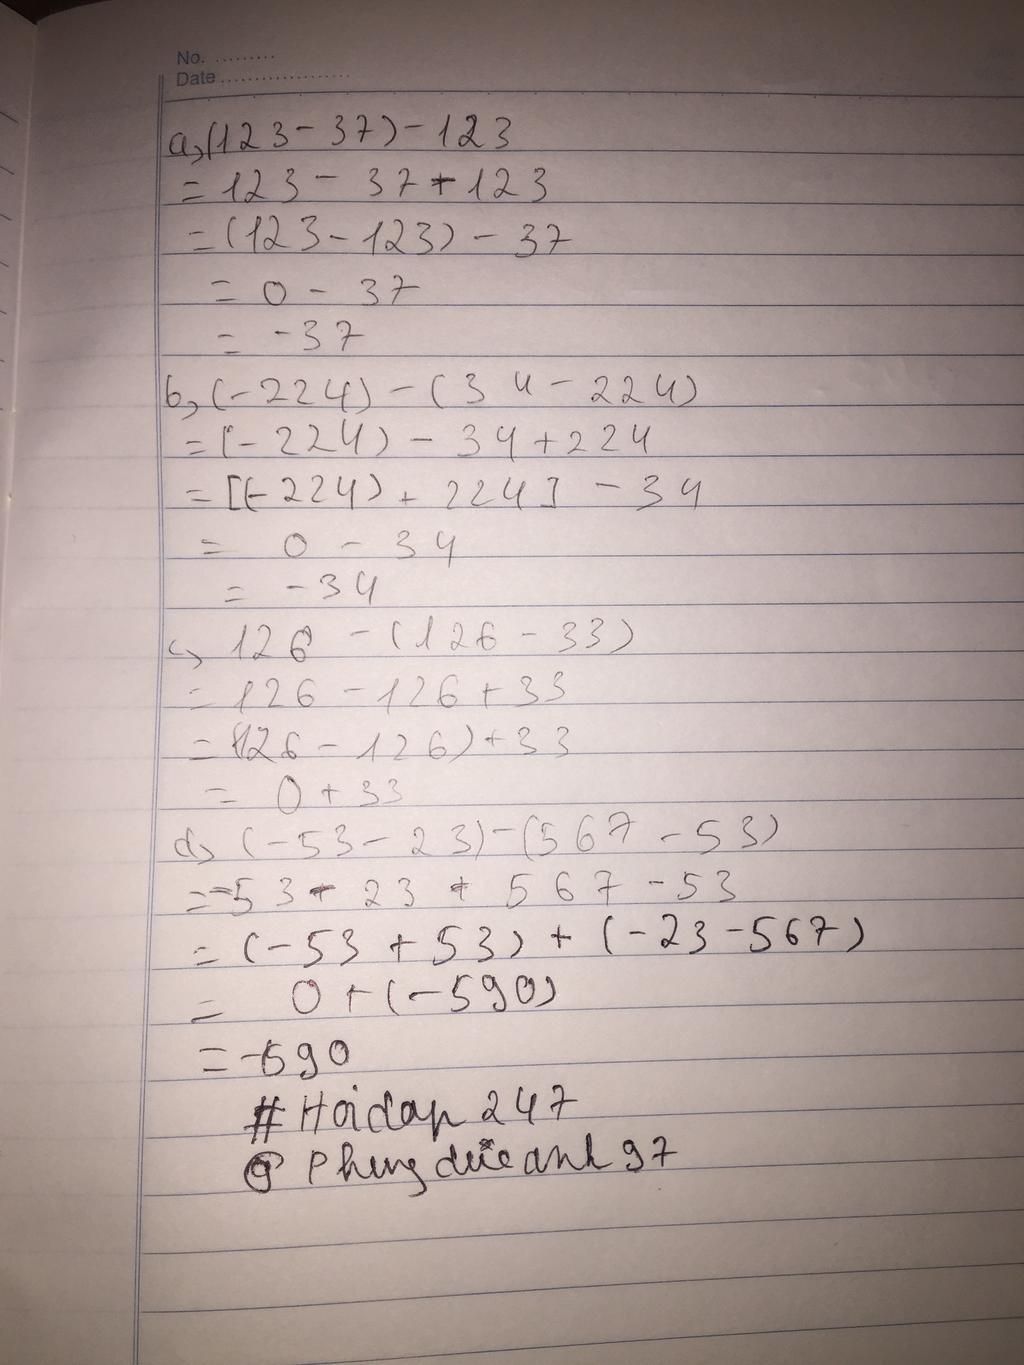 No. .........
Date ...................
a, (123 - 37) - 123
= 123 - 37 + 123
= (123 - 123) - 37
= 0 - 37
= -37
b, (-224) - (34 - 224)
= (-224) - 34 + 224
= [(-224) + 224] - 34
= 0 - 34
= -34
c, 126 - (126 - 33)
= 126 - 126 + 33
= (126 - 126) + 33
= 0 + 33
d, (-53 - 23) - (567 - 53)
= -53 - 23 + 567 - 53
= (-53 + 53) + (-23 - 567)
= 0 + (-590)
= -590
# Hoidap 247
@ Phungducanh97